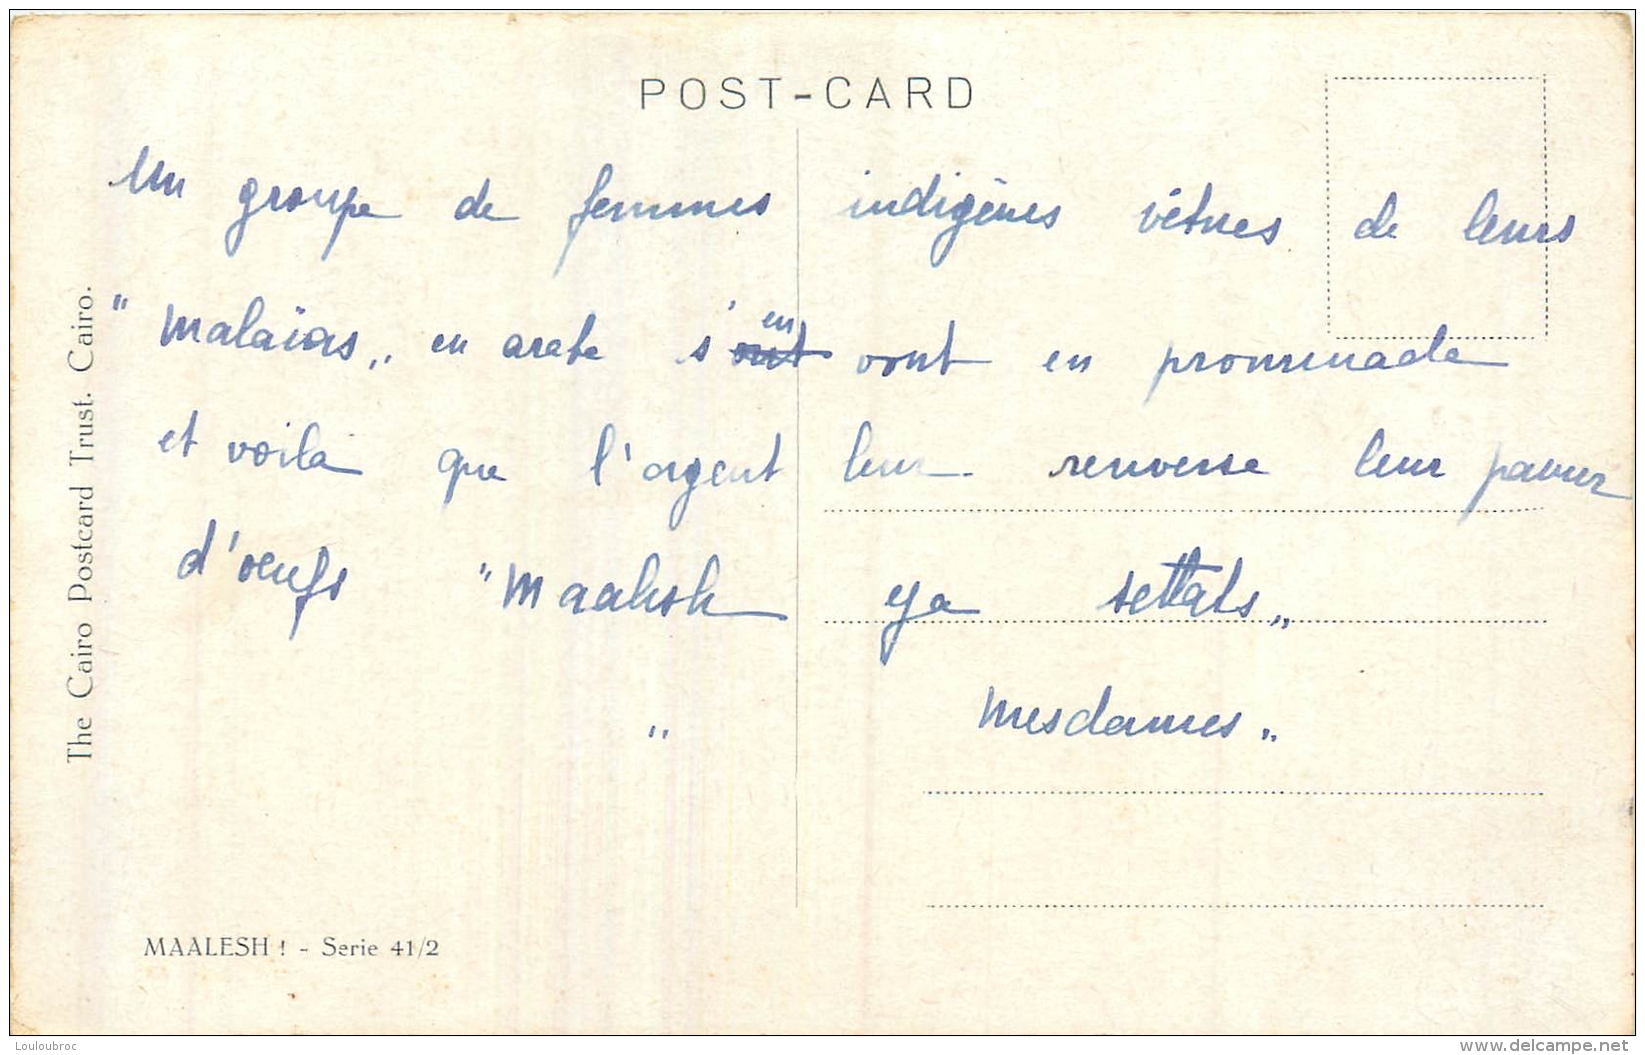 POST-CARD
Un groupe de femmes indigènes vêtues de leurs
"Malaïas„ en arabe s'en vont en promenade
et voilà que l'argent leur renverse leur panier
d'œufs "Maalesh ya settats„
" mesdames„
The Cairo Postcard Trust. Cairo.
MAALESH ! - Serie 41/2
Louloubroc
www.delcampe.net